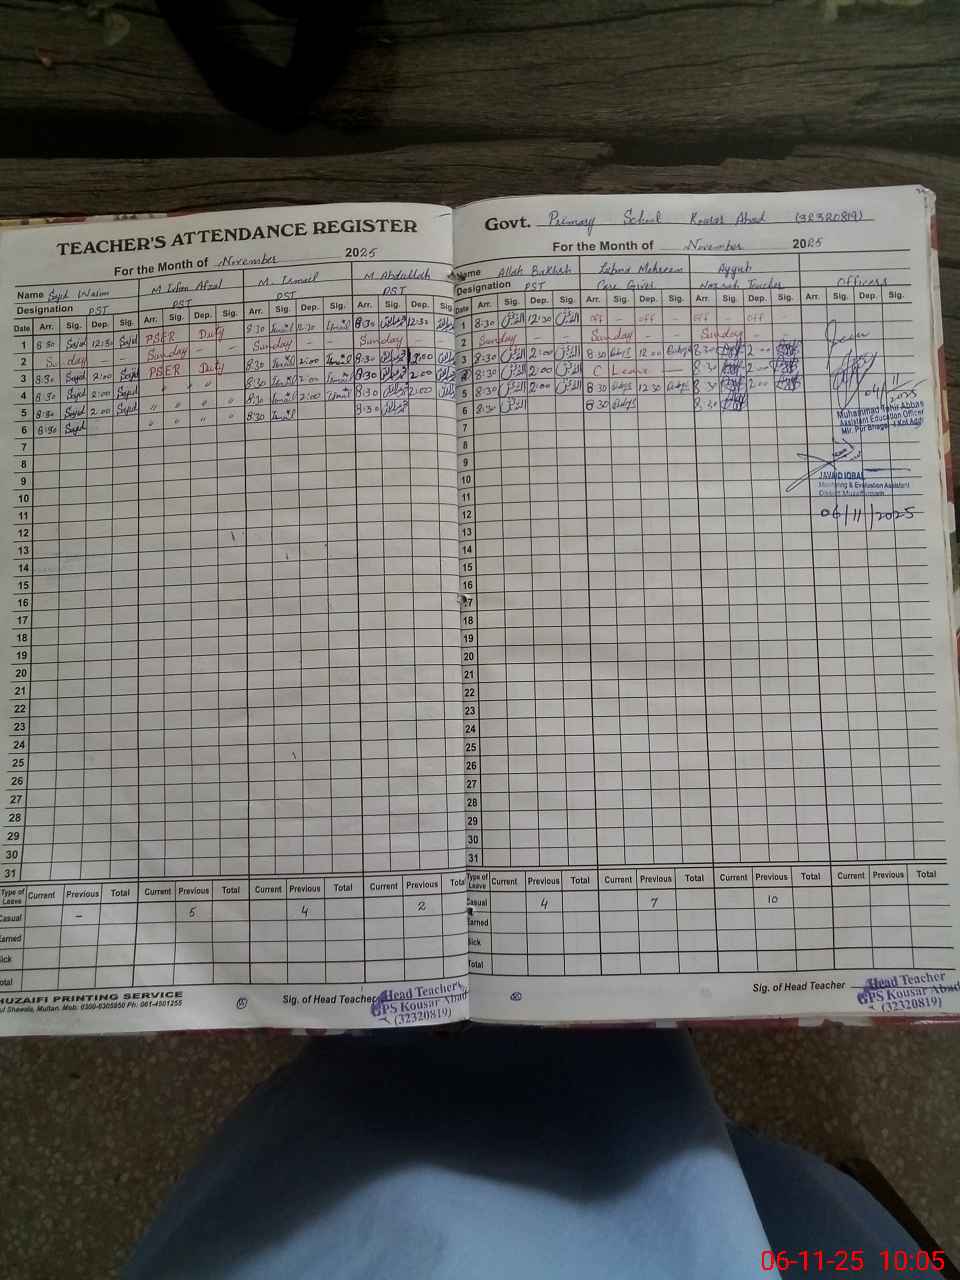 TEACHER'S ATTENDANCE REGISTER
For the Month of November 2025
Name Sajid Wasim M Irfan Afzal M. Ismail M Abdullah
Designation PST PST PST PST
Date Arr. Sig. Dep. Sig. Arr. Sig. Dep. Sig. Arr. Sig. Dep. Sig. Arr. Sig. Dep. Sig.
1 8:30 Sajid 12:30 Sajid PSER Duty 8:30 Ismail 12:30 Ismail 8:30 12:30
2 Sunday - - Sunday - - Sunday - - Sunday - -
3 8:30 Sajid 2:00 Sajid PSER Duty 8:30 Ismail 2:00 Ismail 8:30 2:00
4 8:30 Sajid 2:00 Sajid " " " " 8:30 Ismail 2:00 Ismail 8:30 2:00
5 8:30 Sajid 2:00 Sajid " " " " 8:30 Ismail 2:00 Ismail 8:30 2:00
6 8:30 Sajid " " " " 8:30 Ismail 8:30
7
8
9
10
11
12
13
14
15
16
17
18
19
20
21
22
23
24
25
26
27
28
29
30
31
Type of Leave Current Previous Total Current Previous Total Current Previous Total Current Previous Total
Casual - 5 4 2
Earned
Sick
Total
HUZAIFI PRINTING SERVICE
Shawala, Multan. Mob: 0300-6305950 Ph: 061-4501255
Sig. of Head Teacher
Head Teacher
GPS Kousar Abad
(32320819)
Govt. Primary School Kousar Abad (32320819)
For the Month of November 2025
Name Allah Bakhsh Lubna Mehreen Ayyub
Designation PST Care Giver Nazrah Teacher Officers
Date Arr. Sig. Dep. Sig. Arr. Sig. Dep. Sig. Arr. Sig. Dep. Sig. Arr. Sig. Dep. Sig.
1 8:30 12:30 off - off - off - off -
2 Sunday - - Sunday - - Sunday - -
3 8:30 2:00 8 30 12 00 8:30 2-00
4 8:30 2:00 C Leave — 8:30 2-00
5 8:30 2:00 8 30 12 30 8:30 2-00
6 8:30 8 30 8:30
7
8
9
10
11
12
13
14
15
16
17
18
19
20
21
22
23
24
25
26
27
28
29
30
31
04/11/2025
Muhammad Tahir Abbas
Assistant Education Officer
JAVAID IQBAL
Monitoring & Evaluation Assistant
District Muzaffargarh
06/11/2025
Type of Leave Current Previous Total Current Previous Total Current Previous Total Current Previous Total
Casual 4 7 10
Earned
Sick
Total
Sig. of Head Teacher
Head Teacher
GPS Kousar Abad
(32320819)
06-11-25 10:05